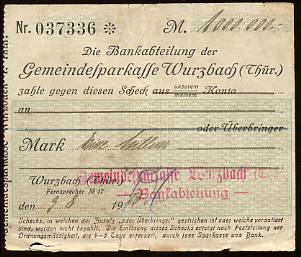 Nr. 037336 * M. 1000 000.-
Die Bankabteilung der
Gemeindesparkasse Wurzbach (Thür.)
zahle gegen diesen Scheck aus unserem Konto
meinem
an
oder Überbringer
Mark eine Million
Gemeindesparkasse Wurzbach
Wurzbach (Thür.)
Bankabteilung
Fernsprecher Nr. 17
den 9. 8. 19
Schecks, in welchen der Zusatz „oder Überbringer" gestrichen ist oder welche vordatiert
sind, werden nicht bezahlt. Die Einlösung dieses Schecks erfolgt nach Feststellung der
Ordnungsmäßigkeit, die 4-5 Tage erfordert, durch jene Sparkasse und Bank.